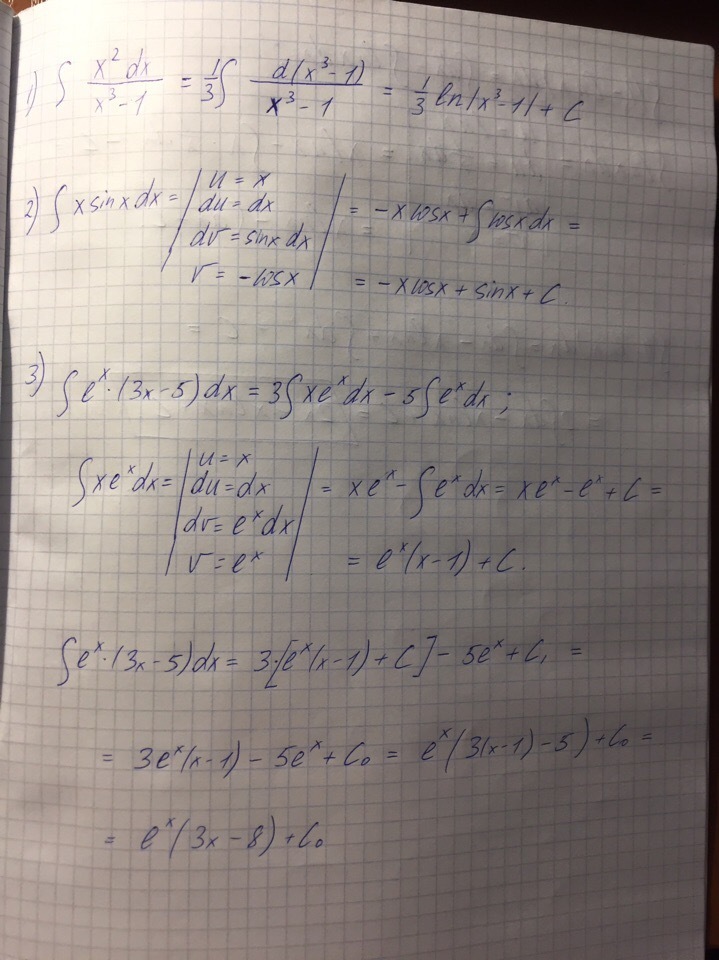 1) ∫ x² dx / x³ - 1 = 1/3 ∫ d(x³ - 1) / x³ - 1 = 1/3 ln|x³ - 1| + C
2) ∫ x sinx dx = | u = x
du = dx
dv = sinx dx
v = -cosx | = -x cosx + ∫ cosx dx =
= -x cosx + sinx + C.
3) ∫ eˣ · (3x - 5) dx = 3 ∫ x eˣ dx - 5 ∫ eˣ dx ;
∫ x eˣ dx = | u = x
du = dx
dv = eˣ dx
v = eˣ | = x eˣ - ∫ eˣ dx = x eˣ - eˣ + C =
= eˣ (x - 1) + C.
∫ eˣ · (3x - 5) dx = 3 · [eˣ (x - 1) + C] - 5eˣ + C₁ =
= 3eˣ (x - 1) - 5eˣ + C₀ = eˣ (3(x - 1) - 5) + C₀ =
= eˣ (3x - 8) + C₀